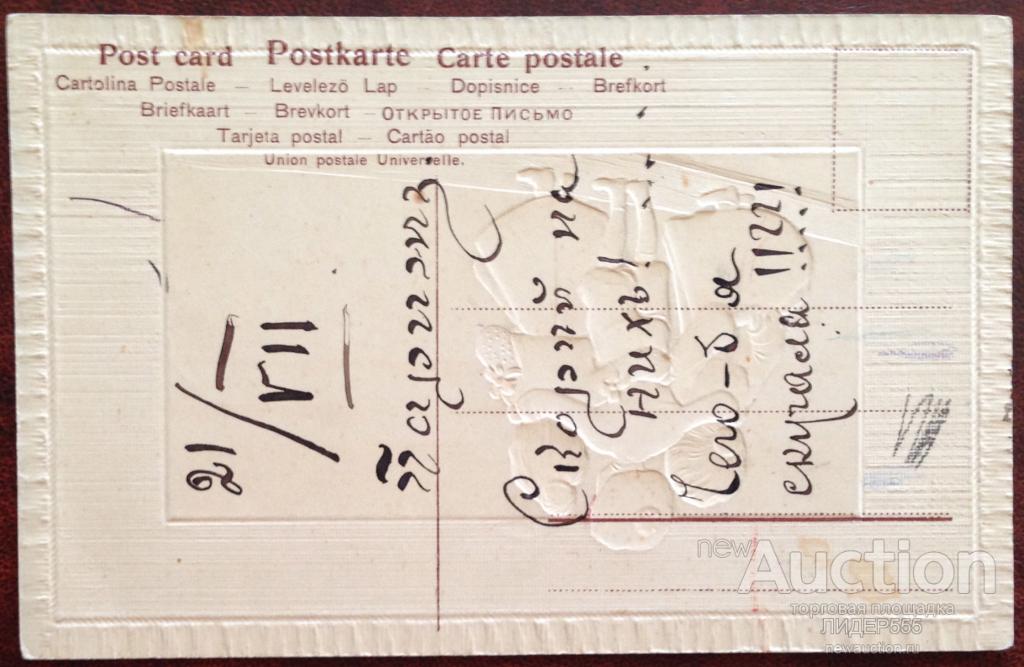 Post card Postkarte Carte postale
Cartolina Postale – Levelezö Lap – Dopisnice – Brefkort
Briefkaart – Brevkort – ОТКРЫТОЕ ПИСЬМО
Tarjeta postal – Cartão postal
Union postale Universelle.
21/VII
на
нихъ!
Чего-б я
скучала!!!!
newAuction
торговая площадка
ЛИДЕР555
newauction.ru